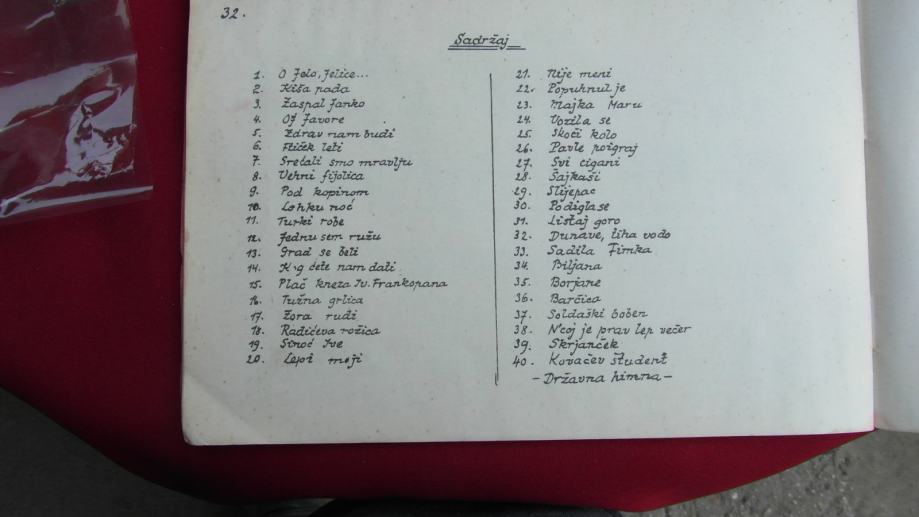 32.
Sadržaj
1. O Jelo, Jelice...
2. Kiša pada
3. Zaspal Janko
4. Oj Javore
5. Zdrav nam budi
6. Ftiček leti
7. Srećali smo mravlju
8. Vehni fijolica
9. Pod kopinom
10. Lehku noć
11. Turki robe
12. Jednu sem ružu
13. Grad se beli
14. K-g ćete nam dali
15. Plač kneza Iv. Frankopana
16. Tužna grlica
17. Zora rudi
18. Radićeva rožica
19. Sinoć Ive
20. Lepi moji
21. Nije meni
22. Popuhnul je
23. Majka Maru
24. Vozila se
25. Skoči kolo
26. Pavle poigraj
27. Svi cigani
28. Šajkaši
29. Slijepac
30. Podigla se
31. Listaj goro
32. Dunave, tiha vodo
33. Sadila Fimka
34. Biljana
35. Borjane
36. Barčica
37. Soldaški boben
38. N'coj je prav lep večer
39. Skrjanček
40. Kovačev študent
- Državna himna -